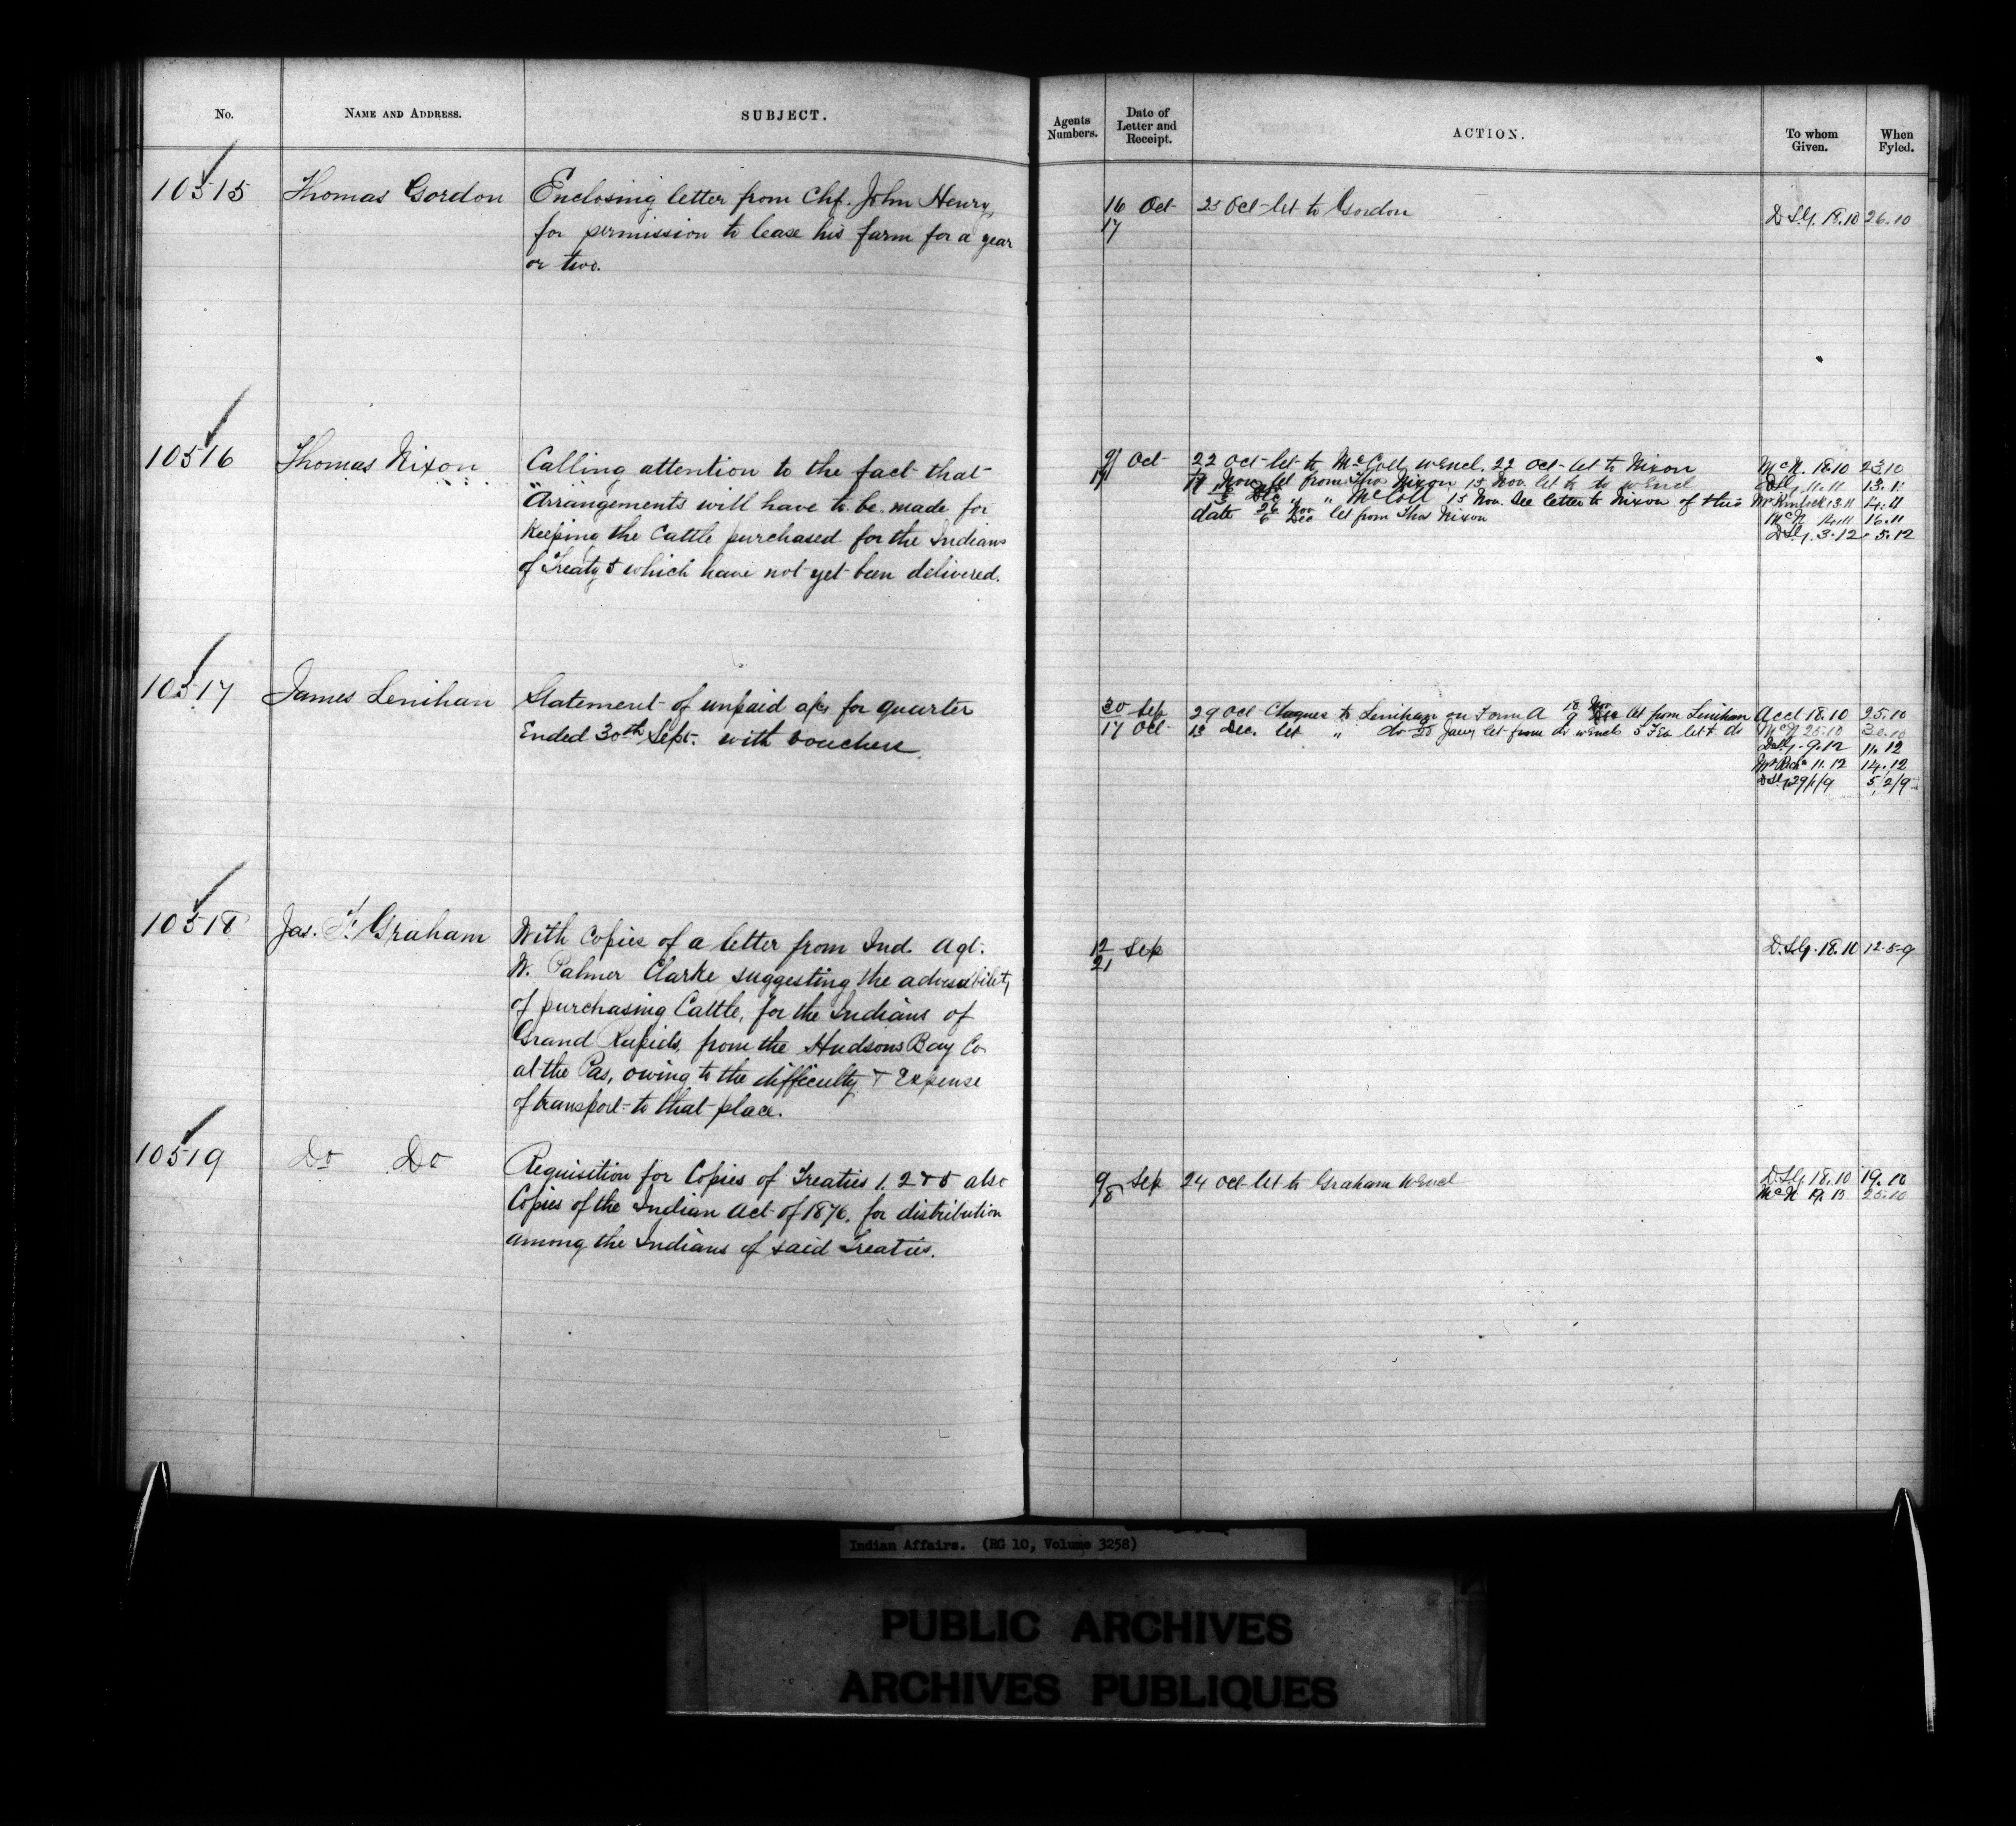 No.
NAME AND ADDRESS.
SUBJECT.
Agents Numbers.
Date of Letter and Receipt.
ACTION.
To whom Given.
When Fyled.
10515
Thomas Gordon
Enclosing letter from Chf. John Henry,
for permission to lease his farm for a year
or two.
16 Oct
17
25 Oct let to Gordon
26.10
10516
Thomas Nixon
Calling attention to the fact that
Arrangements will have to be made for
Keeping the Cattle purchased for the Indians
of Treaty 5 which have not yet been delivered.
9 Oct
17
22 Oct let to McColl w Encl. 22 Oct let to Nixon
Nov let from Thos Nixon 15 Nov let to w Encl
" " McColl 15 Nov. See letter to Nixon of this
date 26 Nov 6 Dec let from Thos Nixon
McN. 18.10 23.10
11.11 13.11
13.11 14.11
McN 16.11
3.12 5.12
10517
James Lenihan
Statement of unpaid a/cs for quarter
Ended 30th Sept. with vouchers.
30 Sep
17 Oct
29 Oct Cheques to Lenihan on Form A 18 Nov 9 Dec let from Lenihan
13 Dec. let " do 20 Jany let from do w encls 5 Feb let to do
Acct 18.10 25.10
McN 25.10 30.10
9.12 11.12
11.12 14.12
29/1/9 5/2/9
10518
Jas. F. Graham
With Copies of a letter from Ind. Agt.
W. Palmer Clarke suggesting the adviseability
of purchasing Cattle, for the Indians of
Grand Rapids, from the Hudsons Bay Co.
at the Pas, owing to the difficulty & Expense
of transport to that place.
12 Sep
21
18.10 12-5-9
10519
Do Do
Requisition for Copies of Treaties 1. 2 & 5 also
Copies of the Indian Act of 1876, for distribution
among the Indians of said Treaties.
9 Sep
24 Oct let to Graham w Encl
18.10 19.10
McN 25.10
Indian Affairs. (RG 10, Volume 3258)
PUBLIC ARCHIVES
ARCHIVES PUBLIQUES